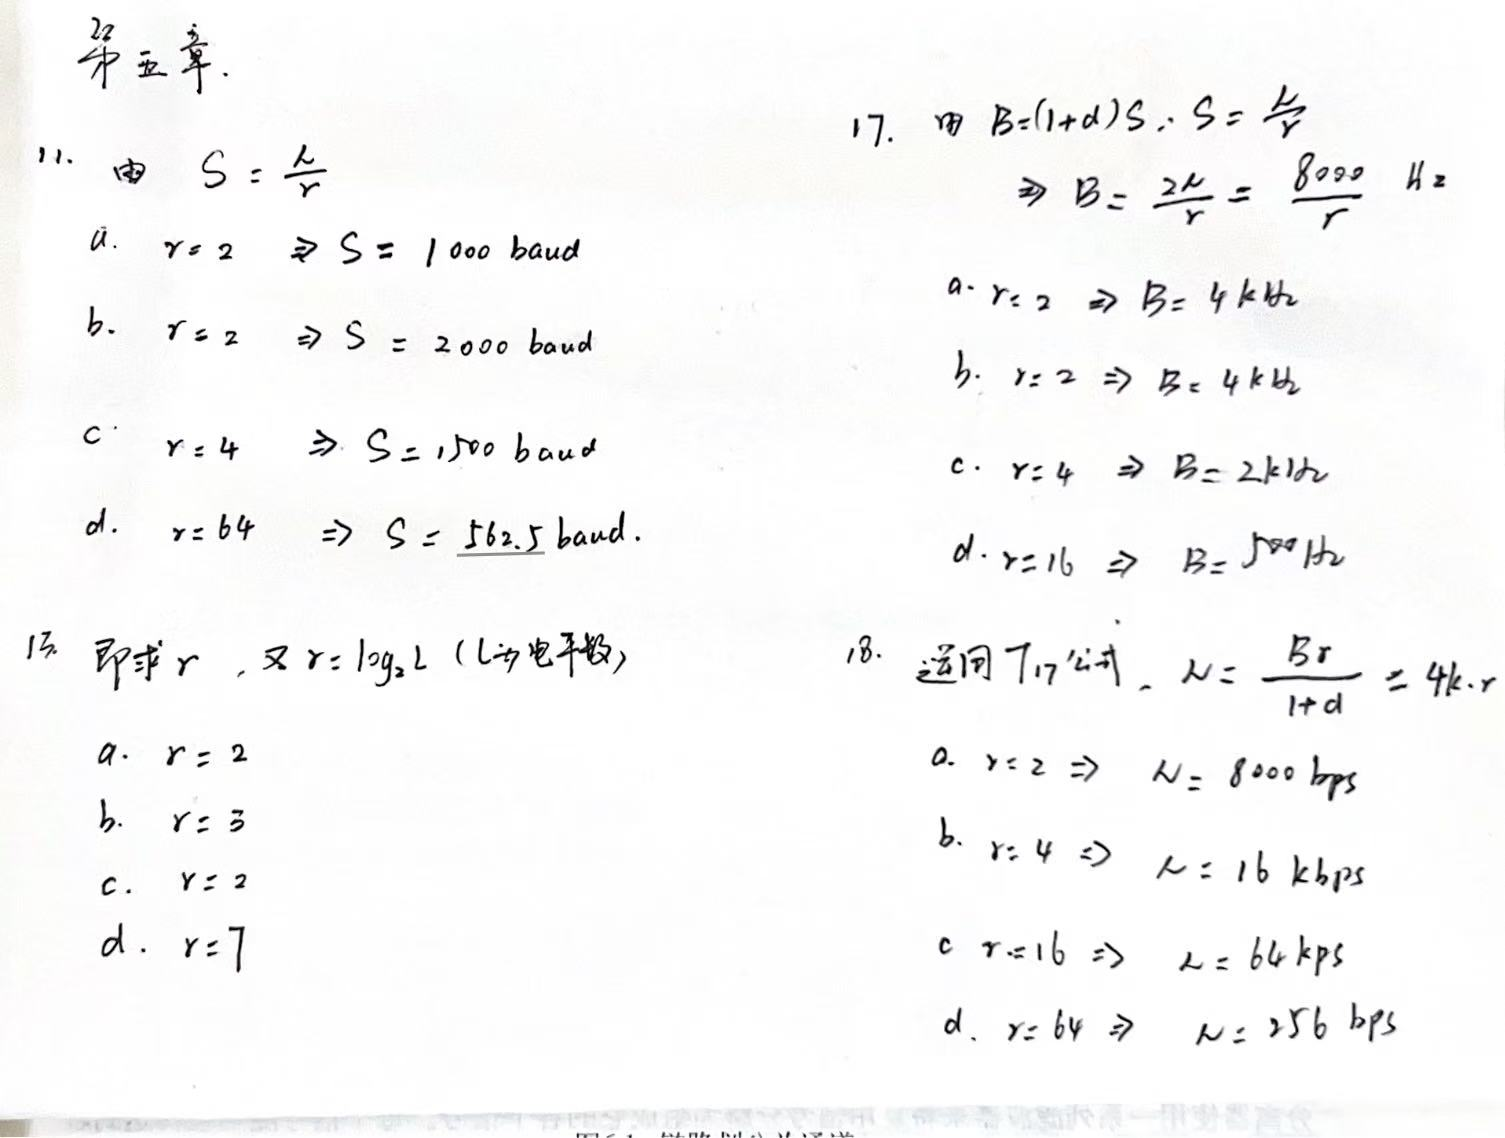 第五章.
11. 由 S = N/r
a. r=2 ⇒ S = 1000 baud
b. r=2 ⇒ S = 2000 baud
c. r=4 ⇒ S = 1500 baud
d. r=64 ⇒ S = 562.5 baud.
13. 即求r, 又 r=log₂L (L为电平数)
a. r=2
b. r=3
c. r=2
d. r=7
17. 由 B=(1+d)S, S = N/r
⇒ B = 2N/r = 8000/r Hz
a. r=2 ⇒ B= 4kHz
b. r=2 ⇒ B= 4kHz
c. r=4 ⇒ B= 2kHz
d. r=16 ⇒ B= 500Hz
18. 运用T17公式. N = Br/(1+d) = 4k·r
a. r=2 ⇒ N= 8000 bps
b. r=4 ⇒ N= 16 kbps
c r=16 ⇒ N= 64 kps
d. r=64 ⇒ N= 256 bps